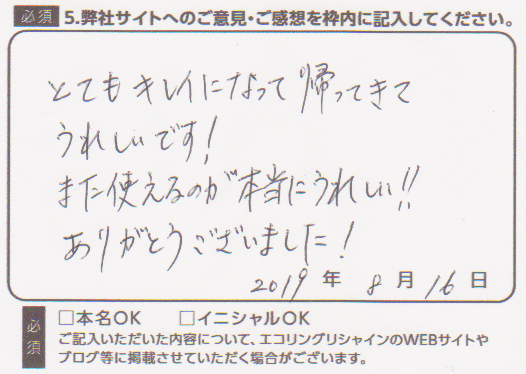 必須 5.弊社サイトへのご意見・ご感想を枠内に記入してください。
とてもキレイになって帰ってきて
うれしいです!
また使えるのが本当にうれしい!!
ありがとうございました!
2019年8月16日
必須 □本名OK □イニシャルOK
ご記入いただいた内容について、エコリングリシャインのWEBサイトや
ブログ等に掲載させていただく場合がございます。